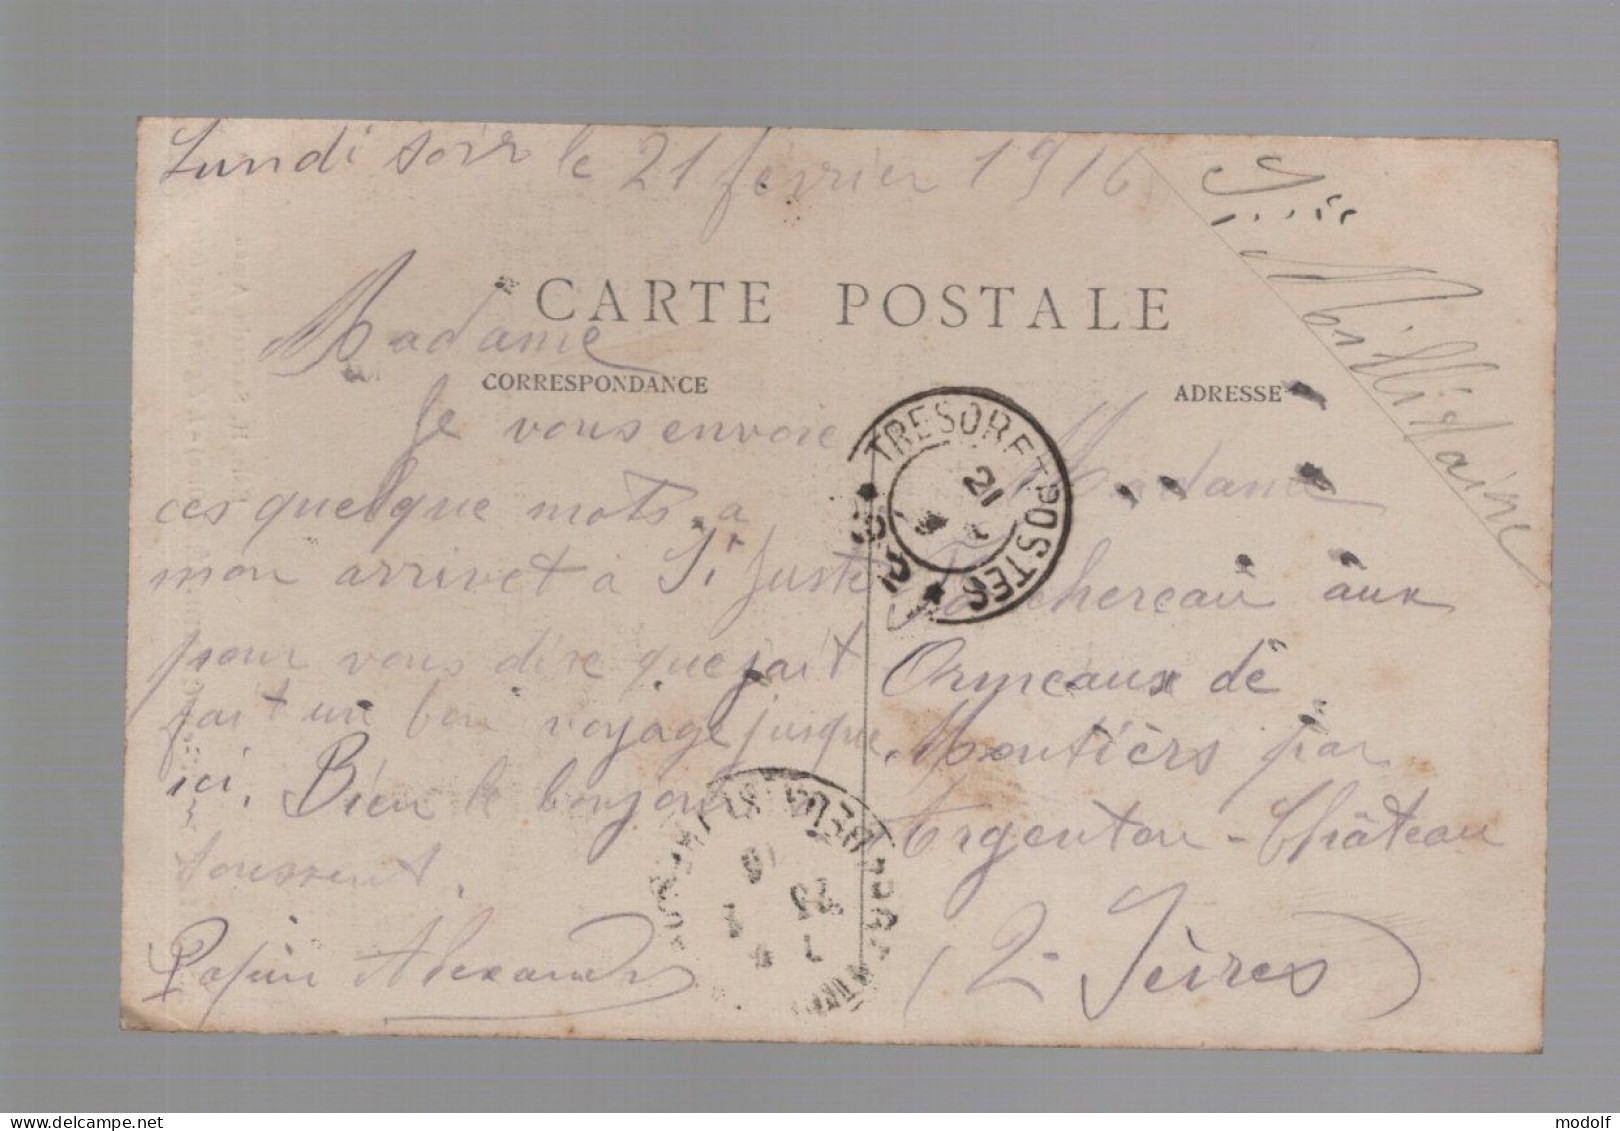 Lundi soir le 21 fevrier 1916
Sce Millietaire
CARTE POSTALE
Madame
CORRESPONDANCE
ADRESSE
Je vous envoie
ces quelque mots a
mon arrivet a St Juste
pour vous dire que jait
fait un bon voyage jusque
ici. Bien le bonjour
Papin Alexandre
TRESOR ET POSTES
21
Madame
Fanchereau aux
Ormeaux de
Moutièrs par
Argenton-Château
(2 Sèvres)
modolf